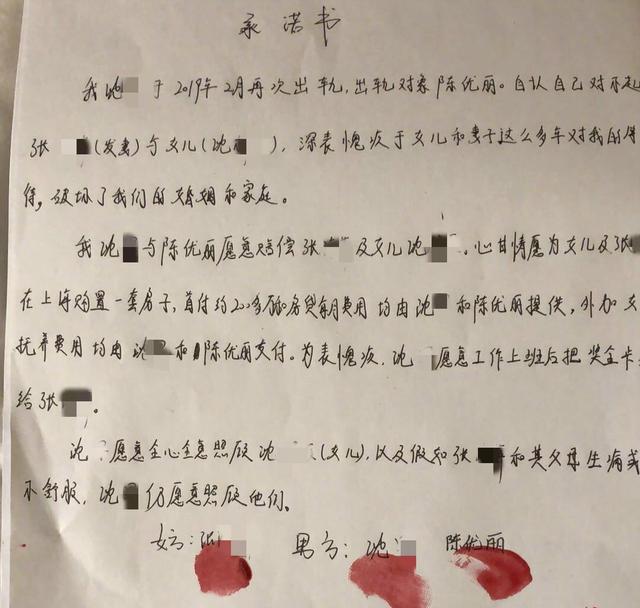 承诺书
我沈 于2019年2月再次出轨,出轨对象陈优丽。自认自己对不起
张 (发妻)与女儿(沈 ),深表愧疚于女儿和妻子这么多年对我的
待,破坏了我们的婚姻和家庭。
我沈 与陈优丽愿意赔偿张 及女儿沈 。心甘情愿为女儿及张
在上海购置一套房子,首付约200多万和房贷每月费用均由沈 和陈优丽提供,外加女
抚养费用均由沈 和陈优丽交付。为表愧疚,沈 愿意工作上班后把奖金卡
给张 。
沈 愿意全心全意照顾沈 (女儿),以及假如张 和其父母生病或
不舒服,沈 仍愿意照顾他们。
女方:张 男方:沈 陈优丽